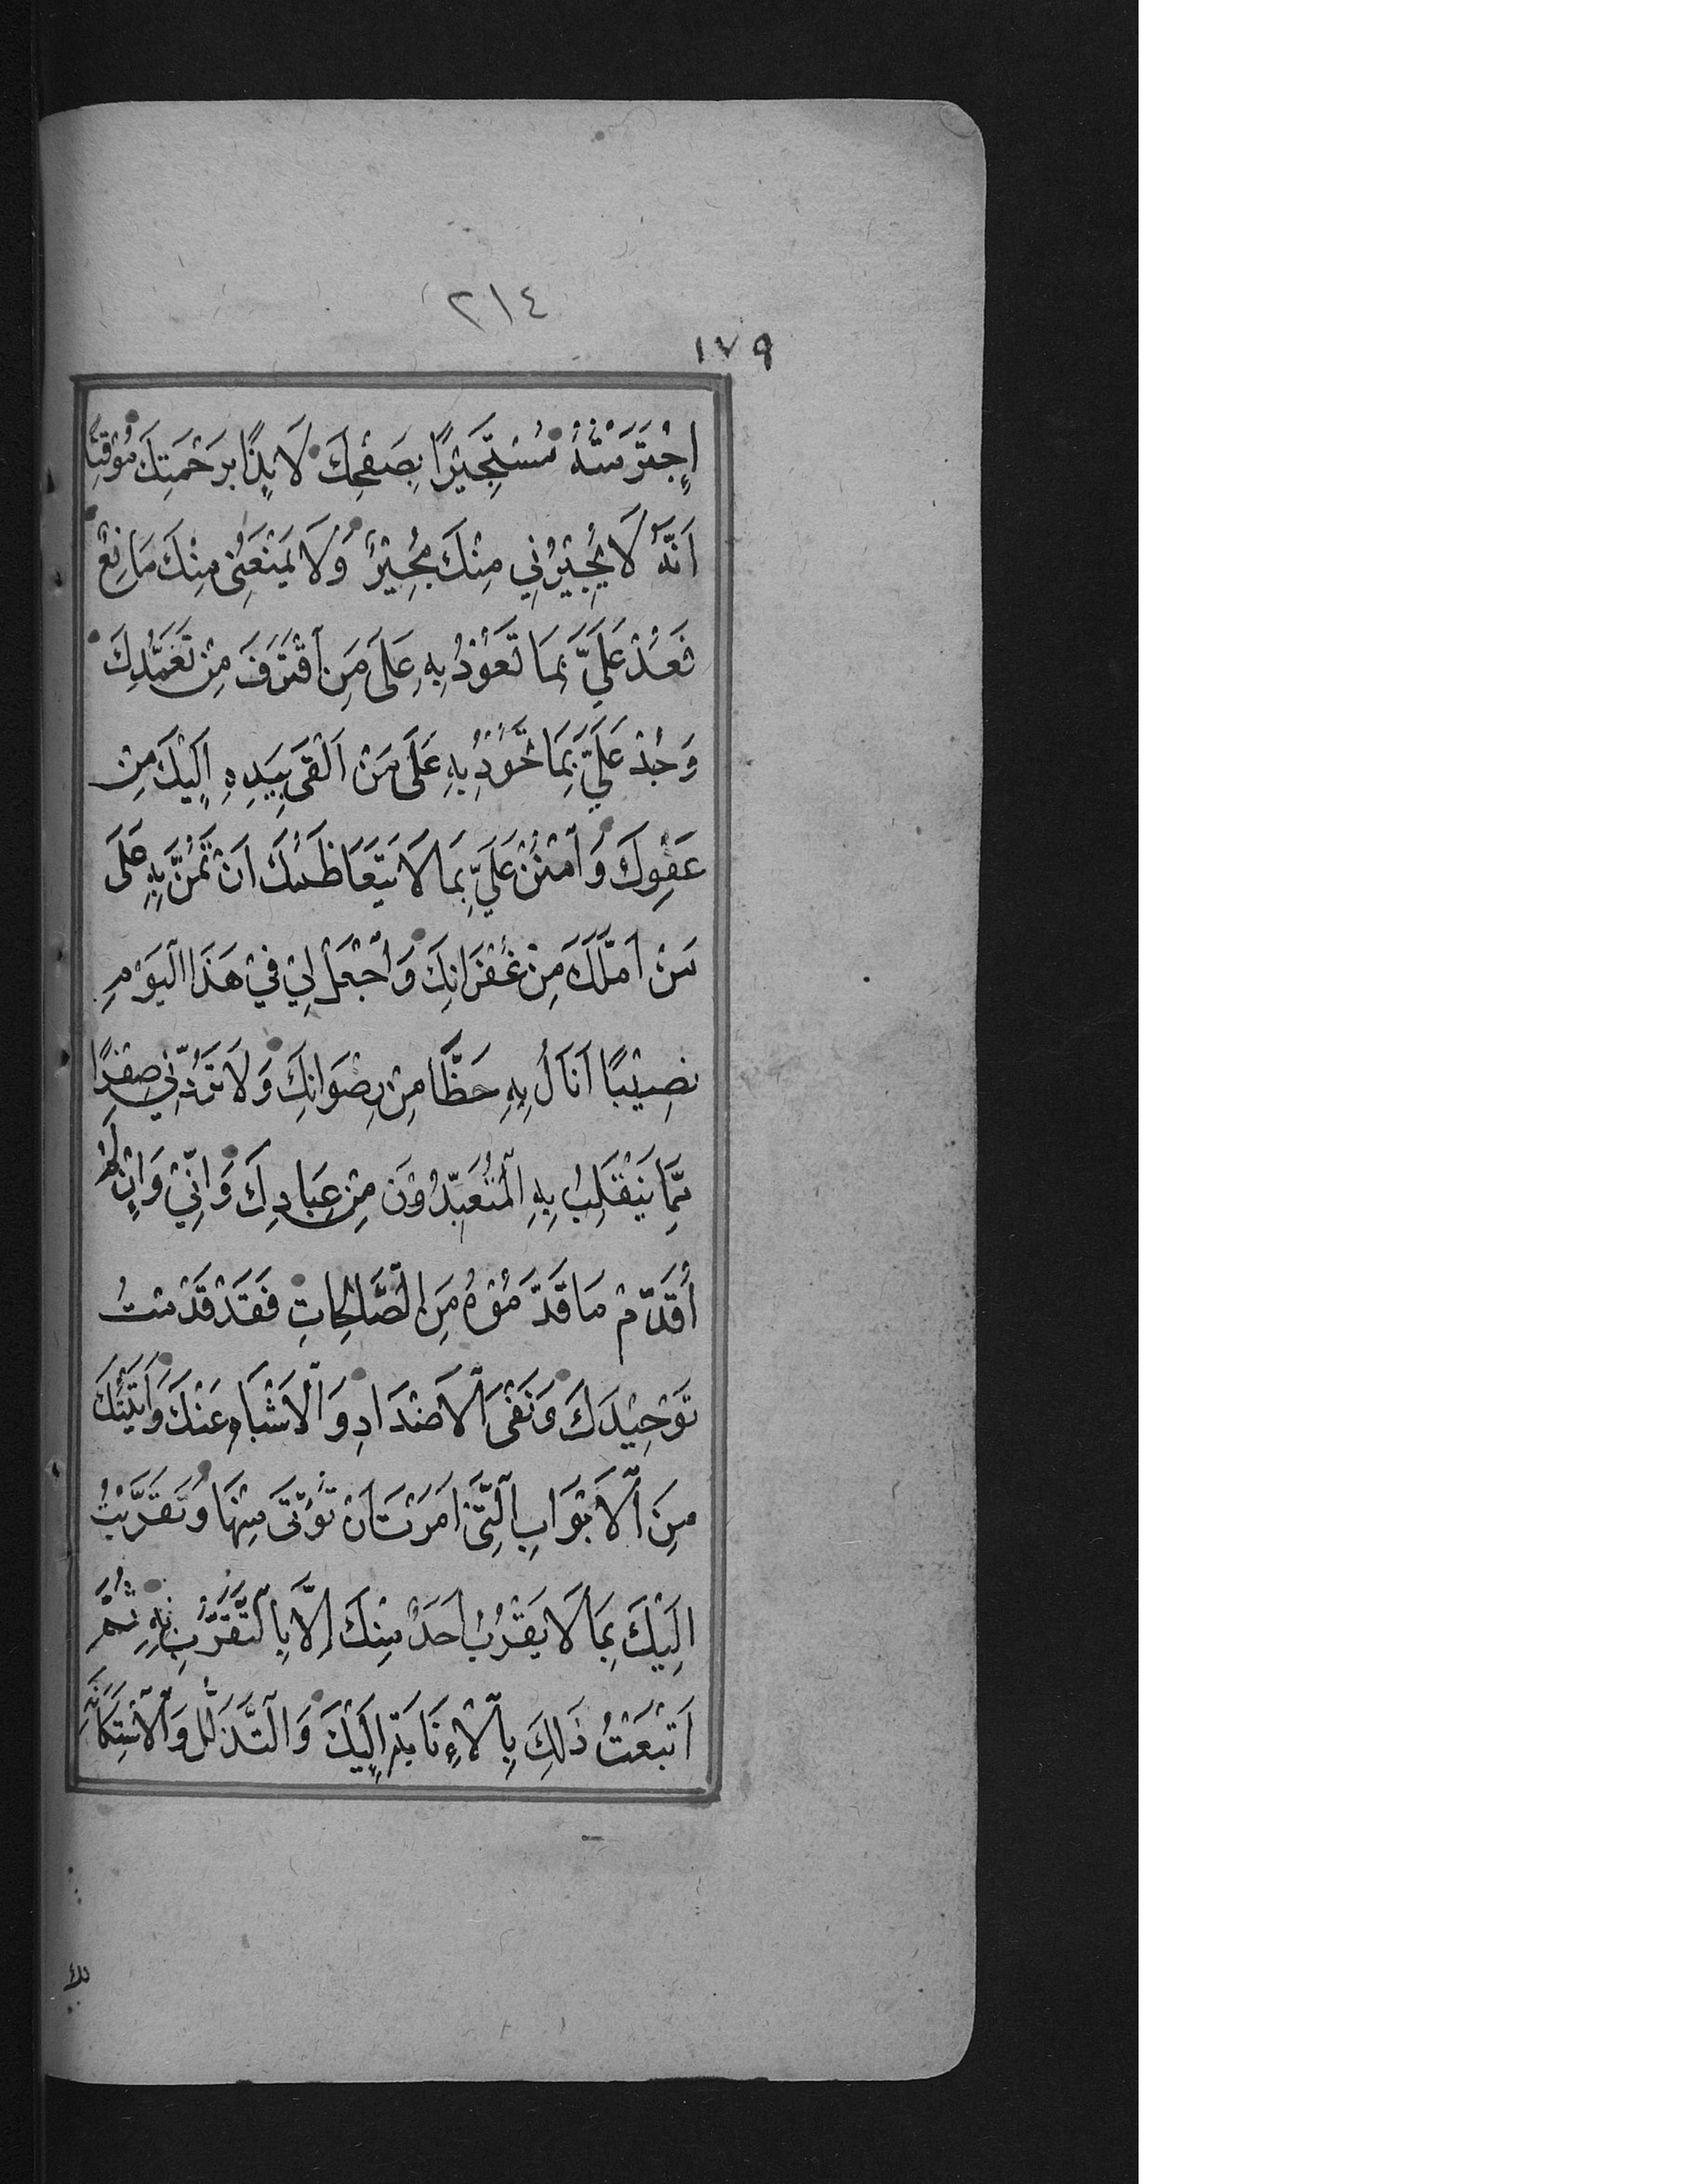 ٢١٤
١٧٩
اِجْتَرَمْتُهُ مُسْتَجِيْرًا بِصَفْحِكَ لَايِذًا بِرَحْمَتِكَ مُوْقِنًا
اَنَّهُ لَا يُجِيْرُنِي مِنْكَ مُجِيْرٌ وَلَا يَمْنَعُنِي مِنْكَ مَانِعٌ
فَعُدْ عَلَيَّ بِمَا تَعُوْدُ بِهِ عَلَى مَنِ اقْتَرَفَ مِنْ تَغَمُّدِكَ
وَجُدْ عَلَيَّ بِمَا تَجُوْدُ بِهِ عَلَى مَنْ اَلْقَى بِيَدِهِ اِلَيْكَ مِنْ
عَفْوِكَ وَامْنُنْ عَلَيَّ بِمَا لَا يَتَعَاظَمُكَ اَنْ تَمُنَّ بِهِ عَلَى
مَنْ اَمَّلَكَ مِنْ غُفْرَانِكَ وَاجْعَلْ لِي فِيْ هَذَا الْيَوْمِ
نَصِيْبًا اَنَالُ بِهِ حَظًّا مِنْ رِضْوَانِكَ وَلَا تَرُدَّنِي صِفْرًا
مِمَّا يَنْقَلِبُ بِهِ الْمُتَعَبِّدُوْنَ مِنْ عِبَادِكَ وَاِنِّيْ وَاِنْ لَمْ
اُقَدِّمْ مَا قَدَّمُوْهُ مِنَ الصَّالِحَاتِ فَقَدْ قَدَّمْتُ
تَوْحِيْدَكَ وَنَفْيَ الْاَضْدَادِ وَالْاَشْبَاهِ عَنْكَ وَاَتَيْتُكَ
مِنَ الْاَبْوَابِ الَّتِيْ اَمَرْتَ اَنْ تُؤْتَى مِنْهَا وَتَقَرَّبْتُ
اِلَيْكَ بِمَا لَا يَقْرُبُ اَحَدٌ مِنْكَ اِلَّا بِالتَّقَرُّبِ بِهِ ثُمَّ
اَتْبَعْتُ ذَلِكَ بِالْاِنَابَةِ اِلَيْكَ وَالتَّذَلُّلِ وَالْاِسْتِكَانَةِ
لك